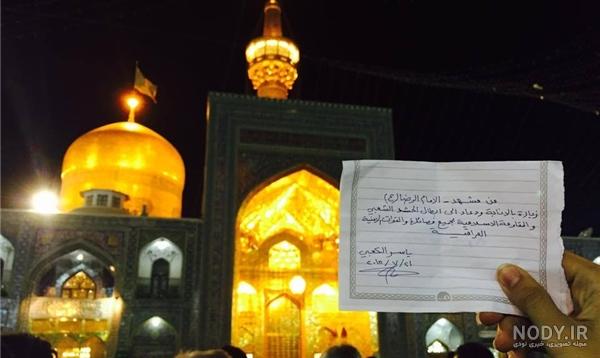 من مشهد - الامام الرضا (ع)
زيارة بالانابة ودعاء الى ابطال الحشد الشعبي
و المقاومة الاسلامية بجميع فصائلها والقوات الامنية
العراقية
ياسر الكعبي
NODY.IR
مجله تصویری، خبری نودی